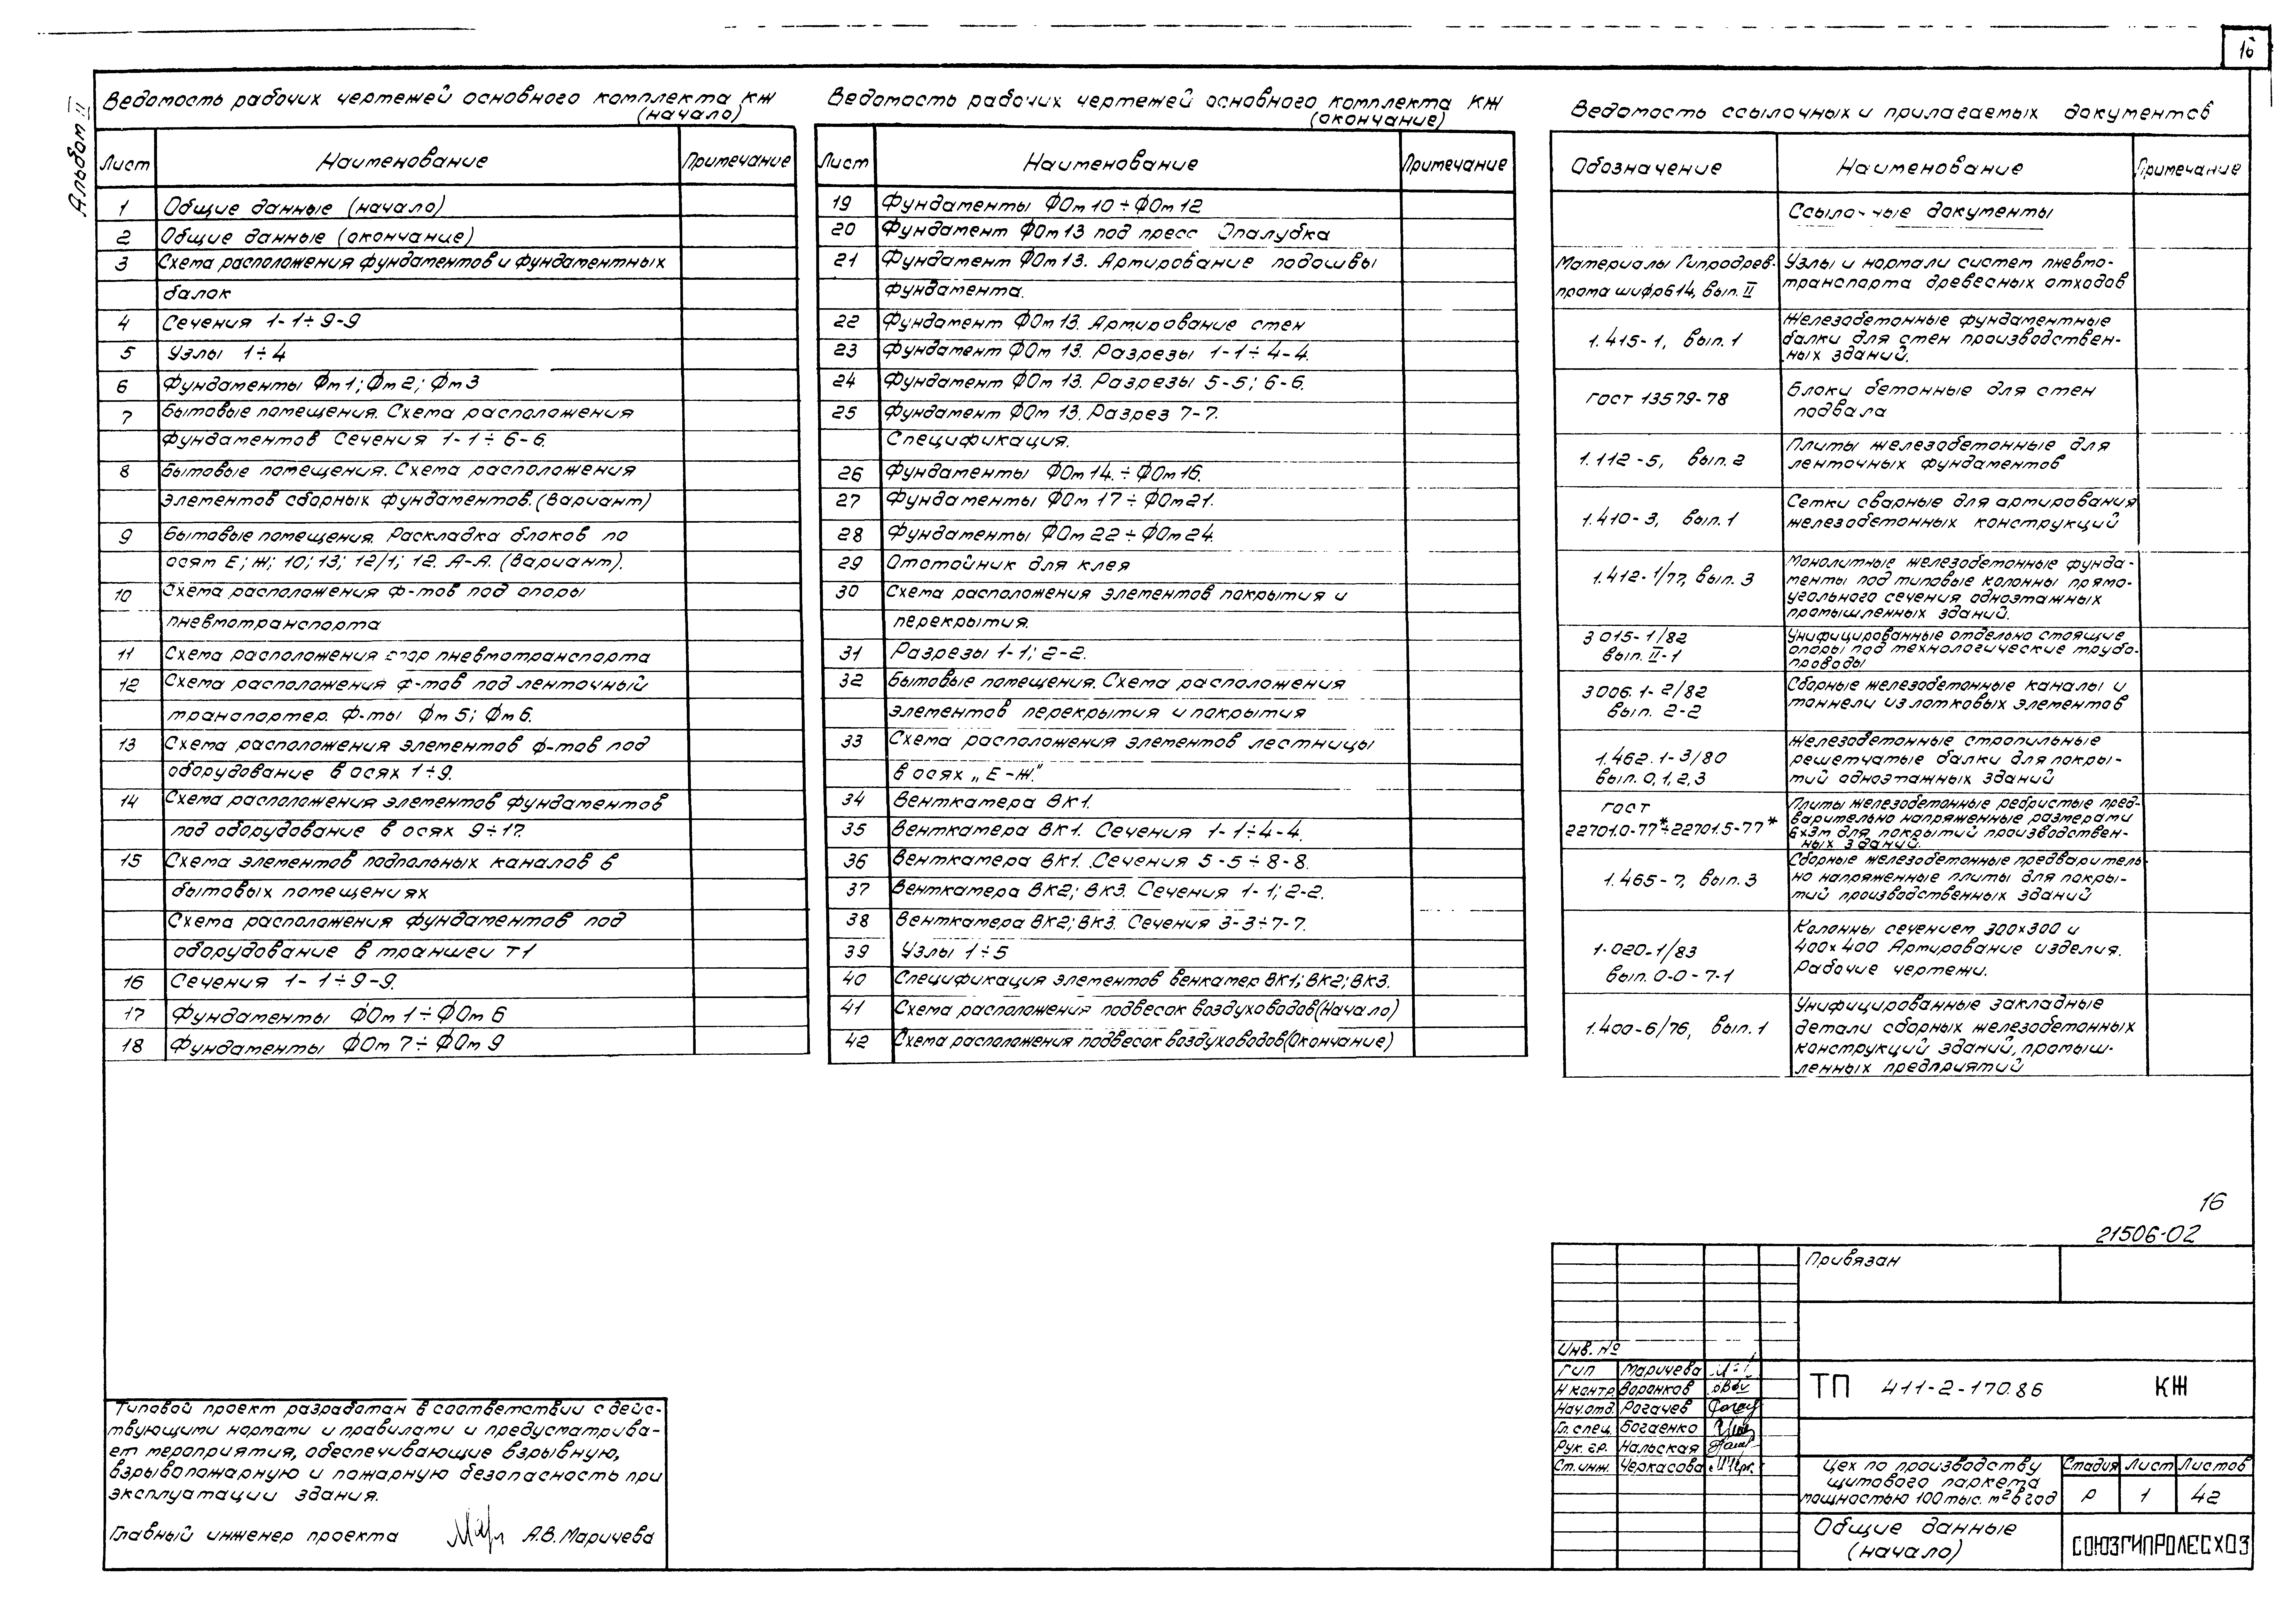 16
Альбом II
Ведомость рабочих чертежей основного комплекта КЖ
(начало)
Лист Наименование Примечание
1 Общие данные (начало)
2 Общие данные (окончание)
3 Схема расположения фундаментов и фундаментных
балок
4 Сечения 1-1÷9-9
5 Узлы 1÷4
6 Фундаменты Фм1; Фм2; Фм3
7 Бытовые помещения. Схема расположения
фундаментов Сечения 1-1÷6-6.
8 Бытовые помещения. Схема расположения
элементов сборных фундаментов. (Вариант)
9 Бытовые помещения. Раскладка блоков по
осям Е; Ж; 10; 13; 12/1; 12. А-А. (Вариант).
10 Схема расположения ф-тов под опоры
пневмотранспорта
11 Схема расположения опор пневмотранспорта
12 Схема расположения ф-тов под ленточный
транспортер. Ф-ты Фм5; Фм6.
13 Схема расположения элементов ф-тов под
оборудование в осях 1÷9.
14 Схема расположения элементов фундаментов
под оборудование в осях 9÷17.
15 Схема элементов подпольных каналов в
бытовых помещениях
Схема расположения фундаментов под
оборудование в траншеи Т1
16 Сечения 1-1÷9-9.
17 Фундаменты ФОм1÷ФОм6
18 Фундаменты ФОм7÷ФОм9
Ведомость рабочих чертежей основного комплекта КЖ
(окончание)
Лист Наименование Примечание
19 Фундаменты ФОм10÷ФОм12
20 Фундамент ФОм13 под пресс Опалубка
21 Фундамент ФОм13. Армирование подошвы
фундамента.
22 Фундамент ФОм13. Армирование стен
23 Фундамент ФОм13. Разрезы 1-1÷4-4.
24 Фундамент ФОм13. Разрезы 5-5; 6-6.
25 Фундамент ФОм13. Разрез 7-7.
Спецификация.
26 Фундаменты ФОм14.÷ФОм16.
27 Фундаменты ФОм17÷ФОм21.
28 Фундаменты ФОм22÷ФОм24.
29 Отстойник для клея
30 Схема расположения элементов покрытия и
перекрытия.
31 Разрезы 1-1; 2-2.
32 Бытовые помещения. Схема расположения
элементов перекрытия и покрытия
33 Схема расположения элементов лестницы
в осях „Е-Ж."
34 Венткамера ВК1.
35 Венткамера ВК1. Сечения 1-1÷4-4.
36 Венткамера ВК1. Сечения 5-5÷8-8.
37 Венткамера ВК2; ВК3. Сечения 1-1; 2-2.
38 Венткамера ВК2; ВК3. Сечения 3-3÷7-7.
39 Узлы 1÷5
40 Спецификация элементов венкамер ВК1; ВК2; ВК3.
41 Схема расположения подвесок воздуховодов(Начало)
42 Схема расположения подвесок воздуховодов(Окончание)
Ведомость ссылочных и прилагаемых документов
Обозначение Наименование Примечание
Ссылочные документы
Материалы Гипродрев- Узлы и нормали систем пневмо-
прома шифр614, вып. II транспорта древесных отходов
1.415-1, вып.1 Железобетонные фундаментные
балки для стен производствен-
ных зданий.
ГОСТ 13579-78 Блоки бетонные для стен
подвала
1.112-5, вып.2 Плиты железобетонные для
ленточных фундаментов
1.410-3, вып.1 Сетки сварные для армирования
железобетонных конструкций
1.412-1/77, вып.3 Монолитные железобетонные фунда-
менты под типовые колонны прямо-
угольного сечения одноэтажных
промышленных зданий.
3 015-1/82 Унифицированные отдельно стоящие
вып. II-1 опоры под технологические трубо-
проводы
3006.1-2/82 Сборные железобетонные каналы и
вып. 2-2 тоннели из лотковых элементов
1.462.1-3/80 Железобетонные стропильные
вып. 0,1,2,3 решетчатые балки для покры-
тий одноэтажных зданий
ГОСТ Плиты железобетонные ребристые пред-
22701.0-77*÷22701.5-77* варительно напряженные размерами
6х3м для покрытий производствен-
ных зданий.
1.465-7, вып.3 Сборные железобетонные предваритель-
но напряженные плиты для покры-
тий производственных зданий
1.020-1/83 Колонны сечением 300х300 и
вып. 0-0-7-1 400х400 Армирование изделия.
Рабочие чертежи.
1.400-6/76, вып.1 Унифицированные закладные
детали сборных железобетонных
конструкций зданий, промыш-
ленных предприятий
16
21506-02
Привязан
Инв. №
ГИП Маричева
Н контр. Воронков
Нач.отд. Рогачев
Гл. спец. Богаенко
Рук. гр. Нальская
Ст. инж. Черкасова
ТП 411-2-170.86 КЖ
Цех по производству
щитового паркета
мощностью 100 тыс. м² в год
Стадия Лист Листов
Р 1 42
Общие данные
(начало)
СОЮЗГИПРОЛЕСХОЗ
Типовой проект разработан в соответствии с дейс-
твующими нормами и правилами и предусматрива-
ет мероприятия, обеспечивающие взрывную,
взрывопожарную и пожарную безопасность при
эксплуатации здания.
Главный инженер проекта А.В. Маричева